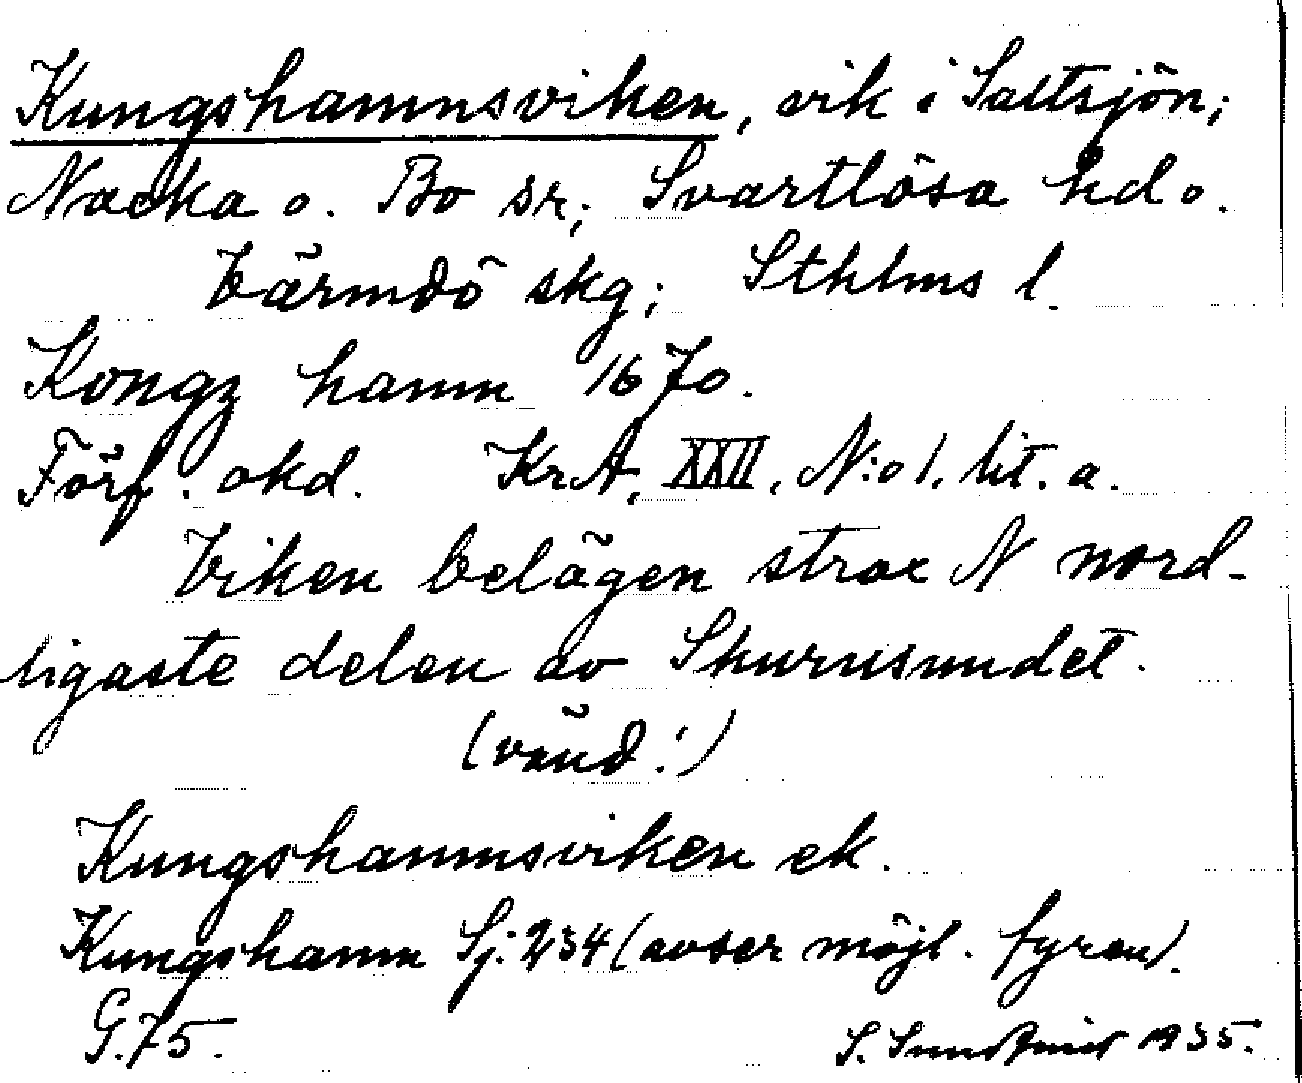 Kungshamnsviken, vik i Saltsjön;
Nacka o. Bo sr; Svartlösa hd o.
Värmdö skg; Sthlms l.
Kongz hamn 1670.
Förf. okd. KrA, XXII, N:o 1. lit. a.
Viken belägen strax N nord-
ligaste delen av Skurusundet.
(vänd!)
Kungshamnsviken ek.
Kungshamn Sj. 234 (avser möjl. fyren).
G. 75.
S. 1935.